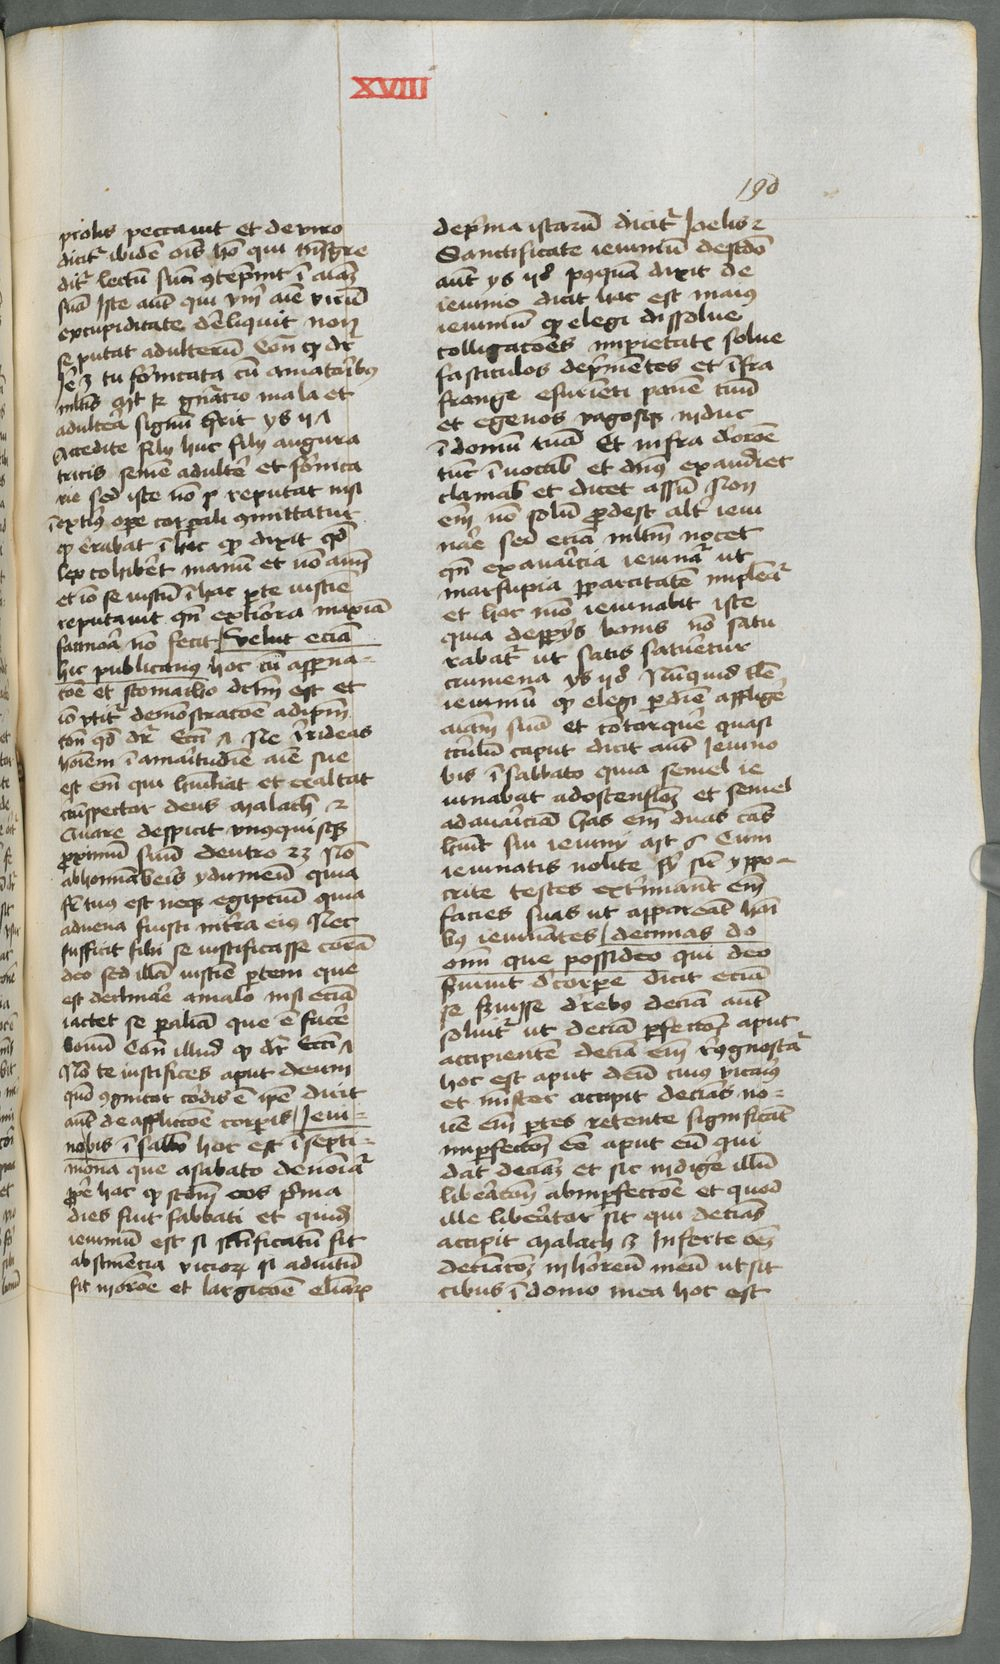 XVIII
190
prolis peccavit et de viro
dicit~ ibidē oīs hō qui trāsgre
dit~ lectū suū ꝯtēpnit ī aīaꝫ
suā Iste aut̄ qui
excupiditate deliquit non
se putat adulterū Cōn͂ qđ dr̄
Je 3 tu fōrnicata cū amatōribꝰ
mltis gn̄atio mala et
adulterā signū q̄rit ys
Accedite filÿ huc filÿ augura
tricis semē adulterī et fōrnica
rie sed iste nō reputat nisi
ī exteriꝰ ope corpali ꝯmittatur
ꝙ errabat ī hoc ꝙ dixit qđ
lex cohibet manū et nō aīm
et iō se iustū ī hac pte iustic̄
reputavit qn̄ exteriora maxīa
facinora nō fecit / velut eciā
hic publicanꝰ hoc cū asperna-
tōe et stomacho dictm̄ est et
iō vtit~ demōstratōe ad
qđ dr̄ Ecci Ne irrideas
hoīem ī amaritudīe aīe sue
est em̄ qui humiliat et exaltat
cūspector deus malach 2
Quare despicit vnꝰquisqꝫ
proximū suū deutro 23 Nō
abhominaberis ydumeū quia
fr̄ tuus est neqꝫ egiptiū quia
advena fuisti in terra eius Nec
sufficit sibi se iustificasse corā
deo sed illā iustic̄ ptem que
est declinare amalo nisi eciā
iactet se paliā que ē facē
bonū Cōn͂ illud ꝙ dr̄ Ecci
Nō te iustifices aput deum
qm̄ ꝯgnitor cordis ē ipē dicit
aut̄ de afflictōe corpis / Ieiu-
nobis ī sabbō hoc est ī septi-
mona que asabato denoīat~
ꝓpe hac ꝙ scdm̄ eos prima
dies fuit sabbati et quidē
ieiuniū est si scīficatū sit
abstinēcia vicioꝝ si adiutū
sit morōe et largicōe eliāꝝ
deprima istarū dicit~ Joelis 2
Sanctificate ieiuniū de scdō
aut̄ ys pꝯquā dixit de
ieiunio dicit hoc est maiꝰ
ieiuniū ꝙ elegi dissolve
colligacōes impietatꝭ solve
fasciculos depͥmentes et īfra
frange esurienti panē tuū
et egenos vagosqꝫ induc
ī domū tuā Et infra d'orōe
tūc īvocab̄ et dn̄s exaudiet
clamab̄ et dicet assū Non
em̄ nō solū pdest alt' ieiu
nare sed eciā mltm̄ nocet
qn̄ exavaricia ieiunat~ ut
marsupia pparcitatē impleāt~
et hoc mō ieiunabit iste
quia despys bonis nō satu
rabat~ ut satis saturetur
crumena ys Nūquid tale
ieiuniū ꝙ elegi p diē affligē
aīam suā et cōtorquē quasi
circulū caput dicit aut̄ Ieiuno
bis ī sabbato quia semel ie
iunabat adostensionē et semel
adavariciā has em̄ duas cās
hūit sui ieiunÿ mt 6 Cum
ieiunatis nolite fi' sic' ypo-
crite tristes exterminant em̄
facies suas ut appareāt hōi
bꝰ ieiunātes / decimas do
omī que possideo qui deo
serviunt d'corpe dicit eciā
se servisse d'rebꝰ deciā aut̄
solvit~ ut deciā pfectōꝫ aput
accipientē deciā em̄ rꝯgnoscat~
hoc est aput deū cuiꝰ vicariꝰ
et mister accipit deciās no-
vē em̄ ptes retente significāt
impfectōꝫ eē aput eū qui
dat deciaꝫ et sic indigē illū
liberatōꝫ abimpfectōe et quod
ille liberator sit qui deciās
accipit malach 3 Inferte oēꝫ
deciatōꝫ in horreū meū ut sit
cibus ī domo mea hoc est